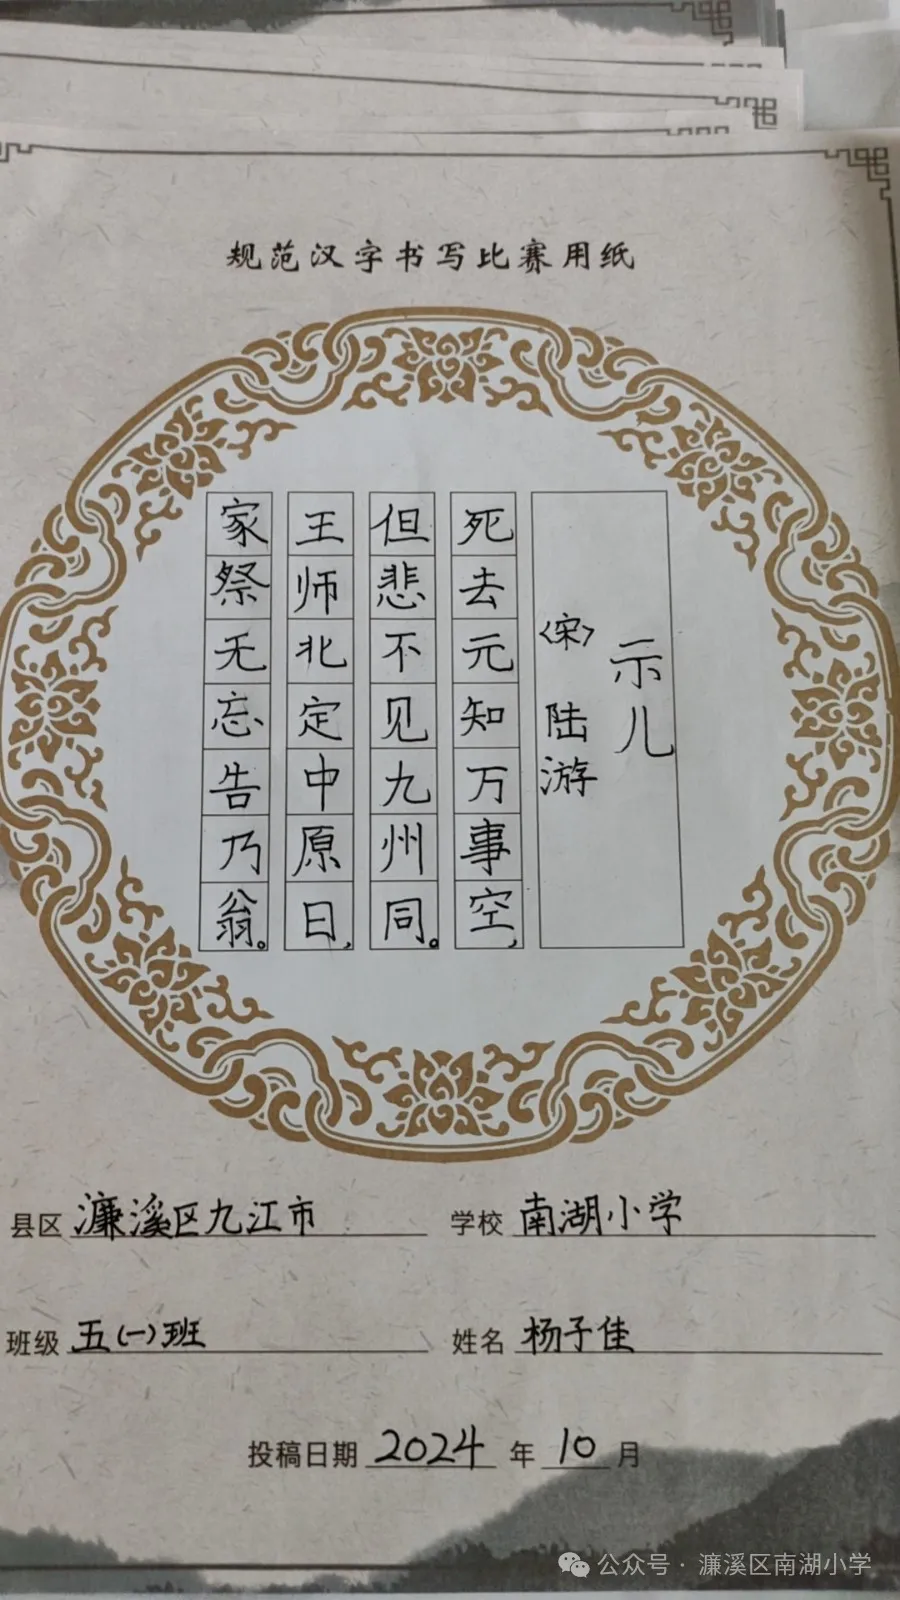 规范汉字书写比赛用纸
示儿
〈宋〉 陆游
死去元知万事空,
但悲不见九州同。
王师北定中原日,
家祭无忘告乃翁。
县区 濂溪区九江市
学校 南湖小学
班级 五(一)班
姓名 杨子佳
投稿日期 2024 年 10 月
公众号 · 濂溪区南湖小学